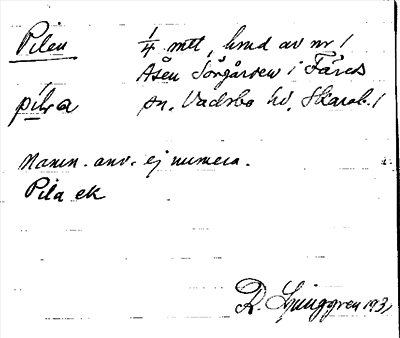 Pilen 1/4 mtl, hmd av nr 1
Åsen Sörgården i Färeds
pi̇̄l₃a sn, Vadsbo hd, Skarab. l
Namn. anv. ej numera.
Pila ek
R. Ljunggren 193